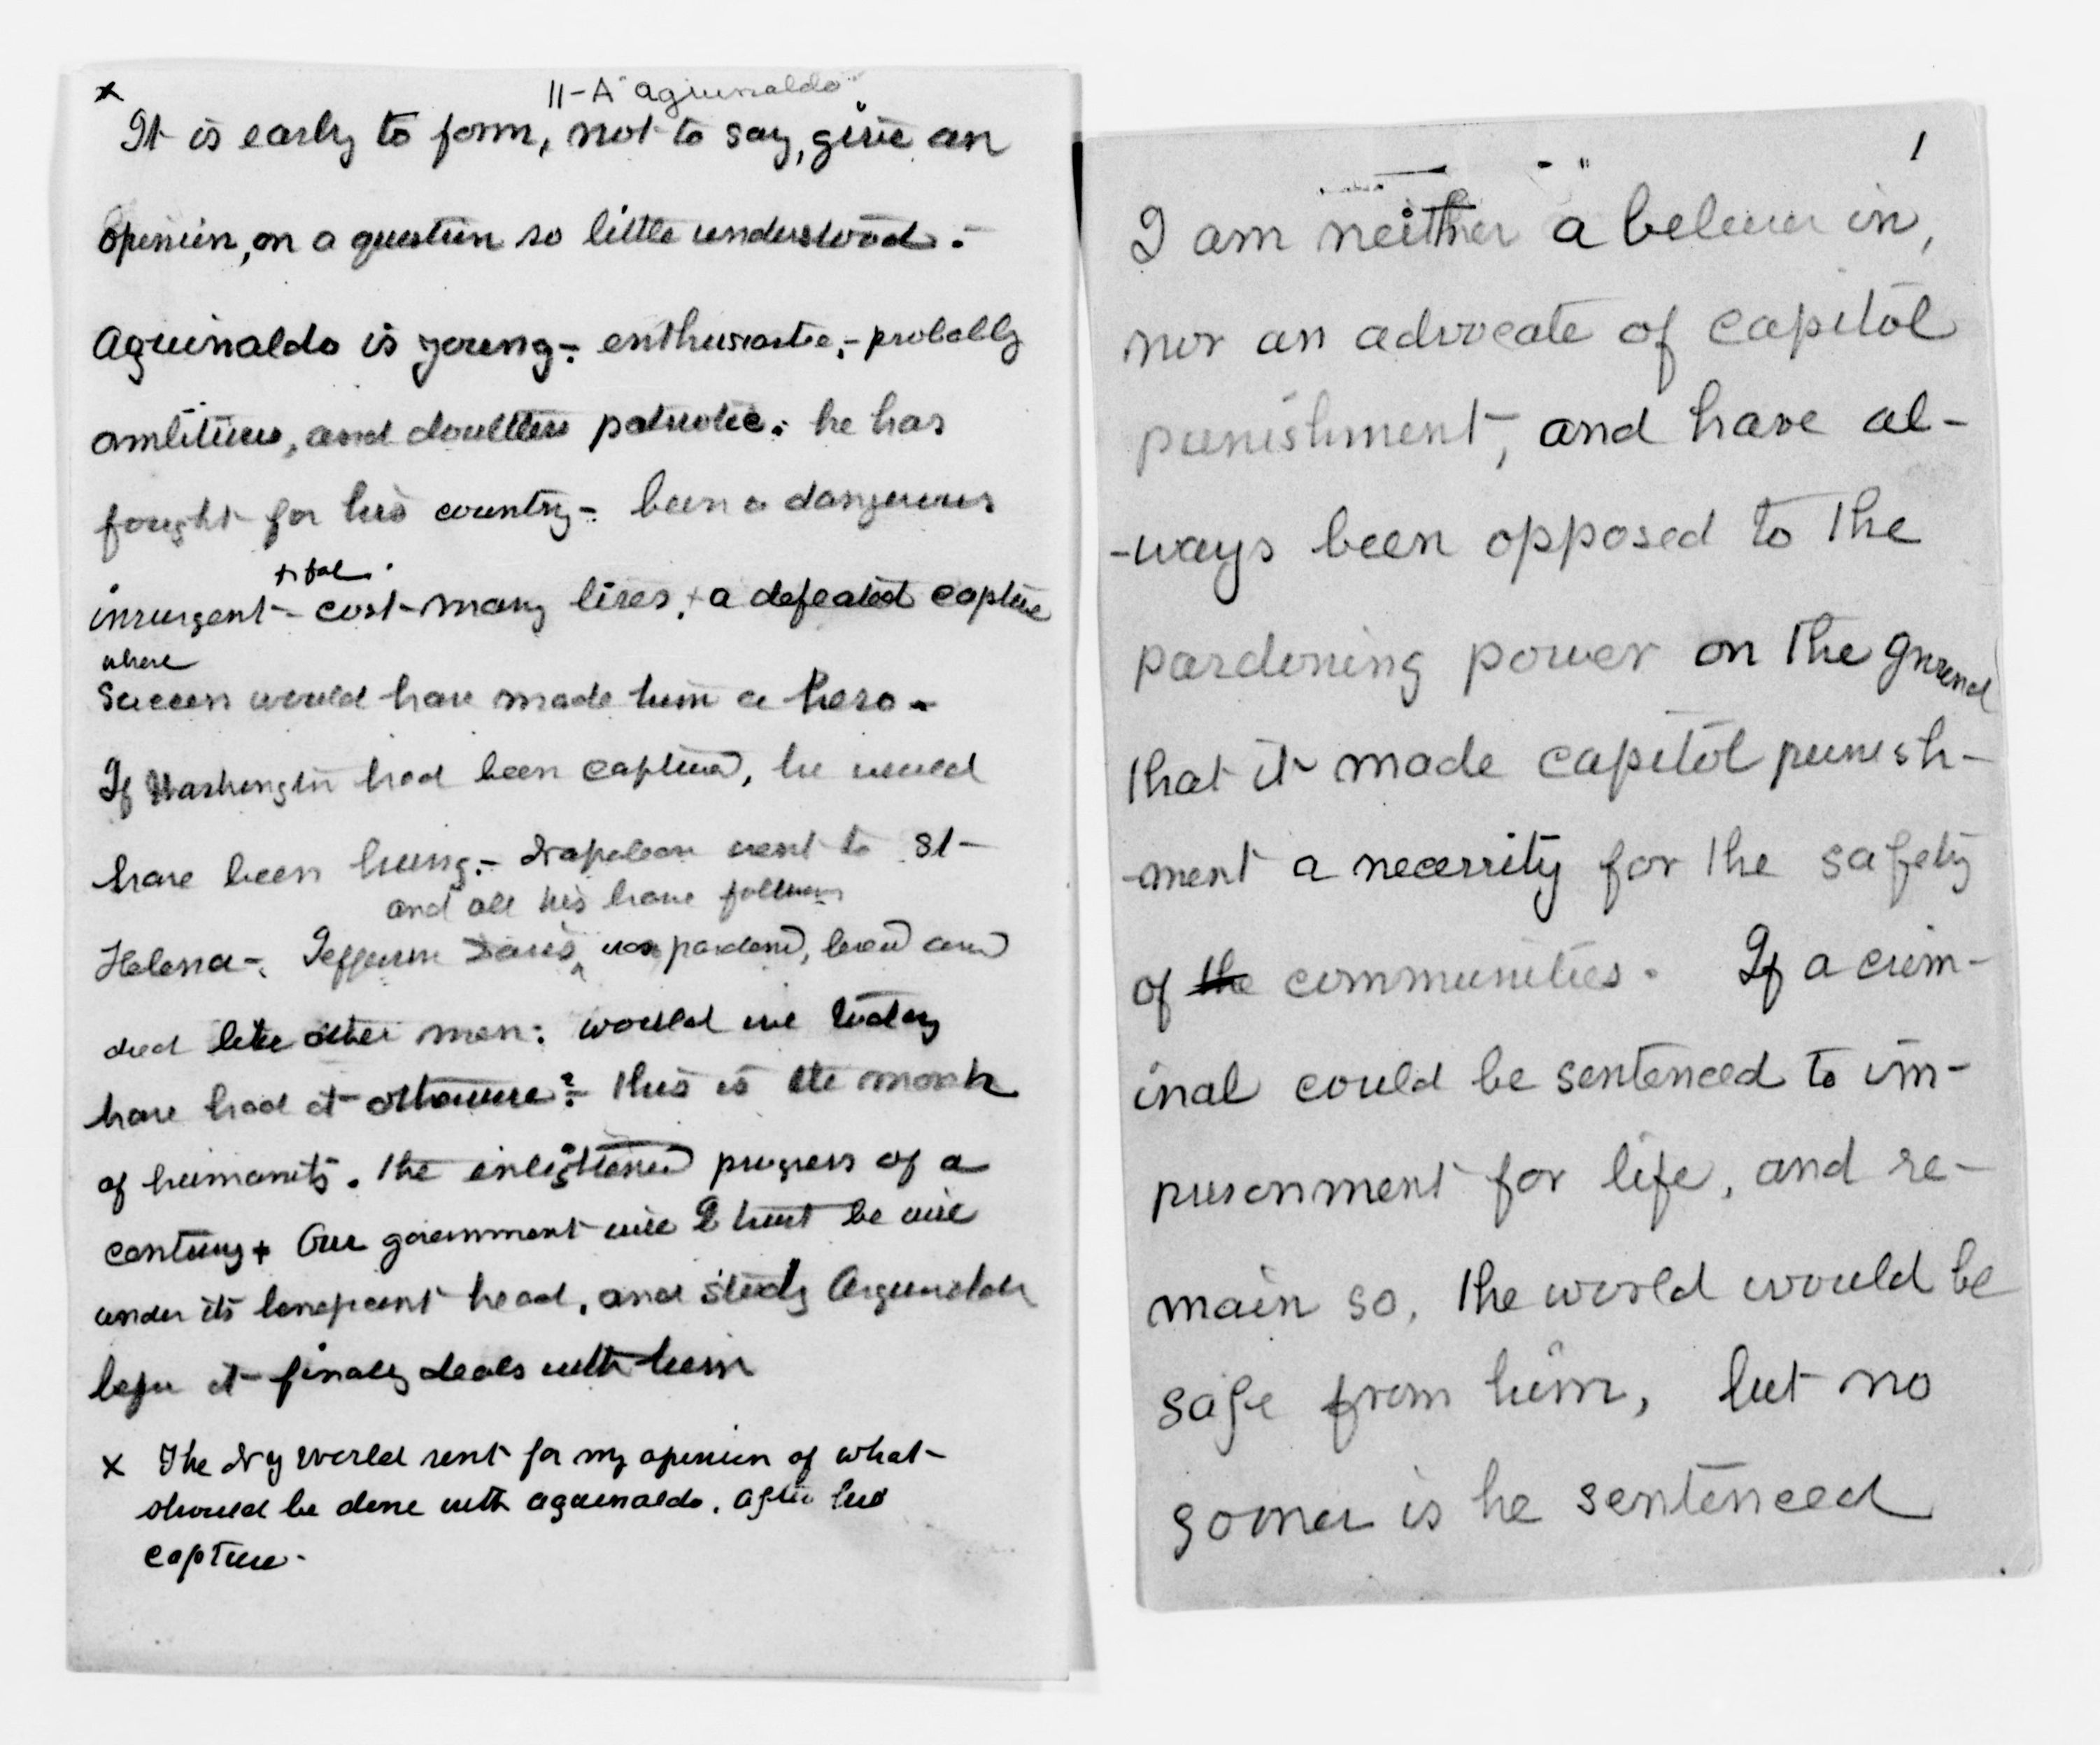 x
11-A "Aguinaldo"
It is early to form, not to say, give an
opinion, on a question so little understood.-
Aguinaldo is young- enthusiastic,- probably
ambitious, and doubtless patriotic. he has
fought for his country- been a dangerous
insurgent- cost many lives, + a defeated captive
where
success would have made him a hero.-
If Washington had been captured, he would
have been hung.- Napoleon went to St-
and all his brave followers
Helena-. Jefferson Davis ^ was pardoned, lived and
died like other men: would we today
have had it otherwise?- this is the march
of humanity. the enlightened progress of a
century + Our government will I trust be wise
under its beneficent head, and study Aguinaldo
before it finally deals with him
x The N Y World sent for my opinion of what
should be done with Aguinaldo, after his
capture.
1
I am neither a believer in,
nor an advocate of capitol
punishment, and have al-
-ways been opposed to the
pardoning power on the ground
that it made capitol punish-
-ment a necessity for the safety
of the communities. If a crim-
inal could be sentenced to im-
prisonment for life, and re-
main so, the world would be
safe from him, but no
sooner is he sentenced